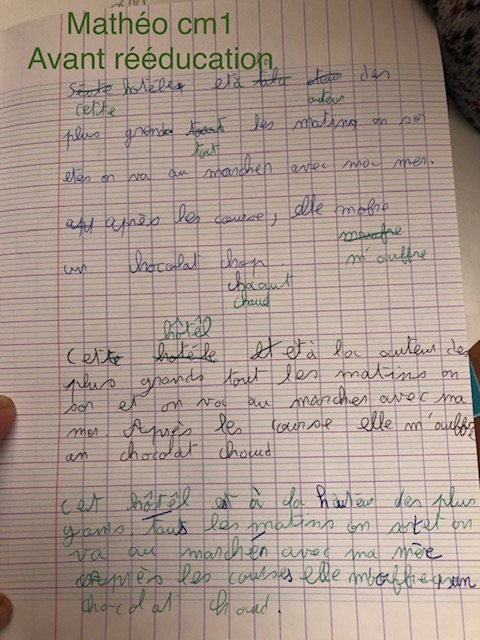 Mathéo cm1
Avant rééducation
hotéles età des
cette auteur
plus grands les matins on sor
tout
etes on va au marcher avec ma mer.
après les course, elle mofre
m'auffre
un chocolat chop.
chaaut
chaud
hôtêl
Cette età la auteur des
plus grands tout les matins on
sor et on va au marcher avec ma
mer. Après les course elle m'auffre
un chocolat choud
Cet hôtêl est à la hauteur des plus
grants. Tous les matins on sortet on
va au marchér avec ma mère
après les courses elle m'offre un
chocolat choud.